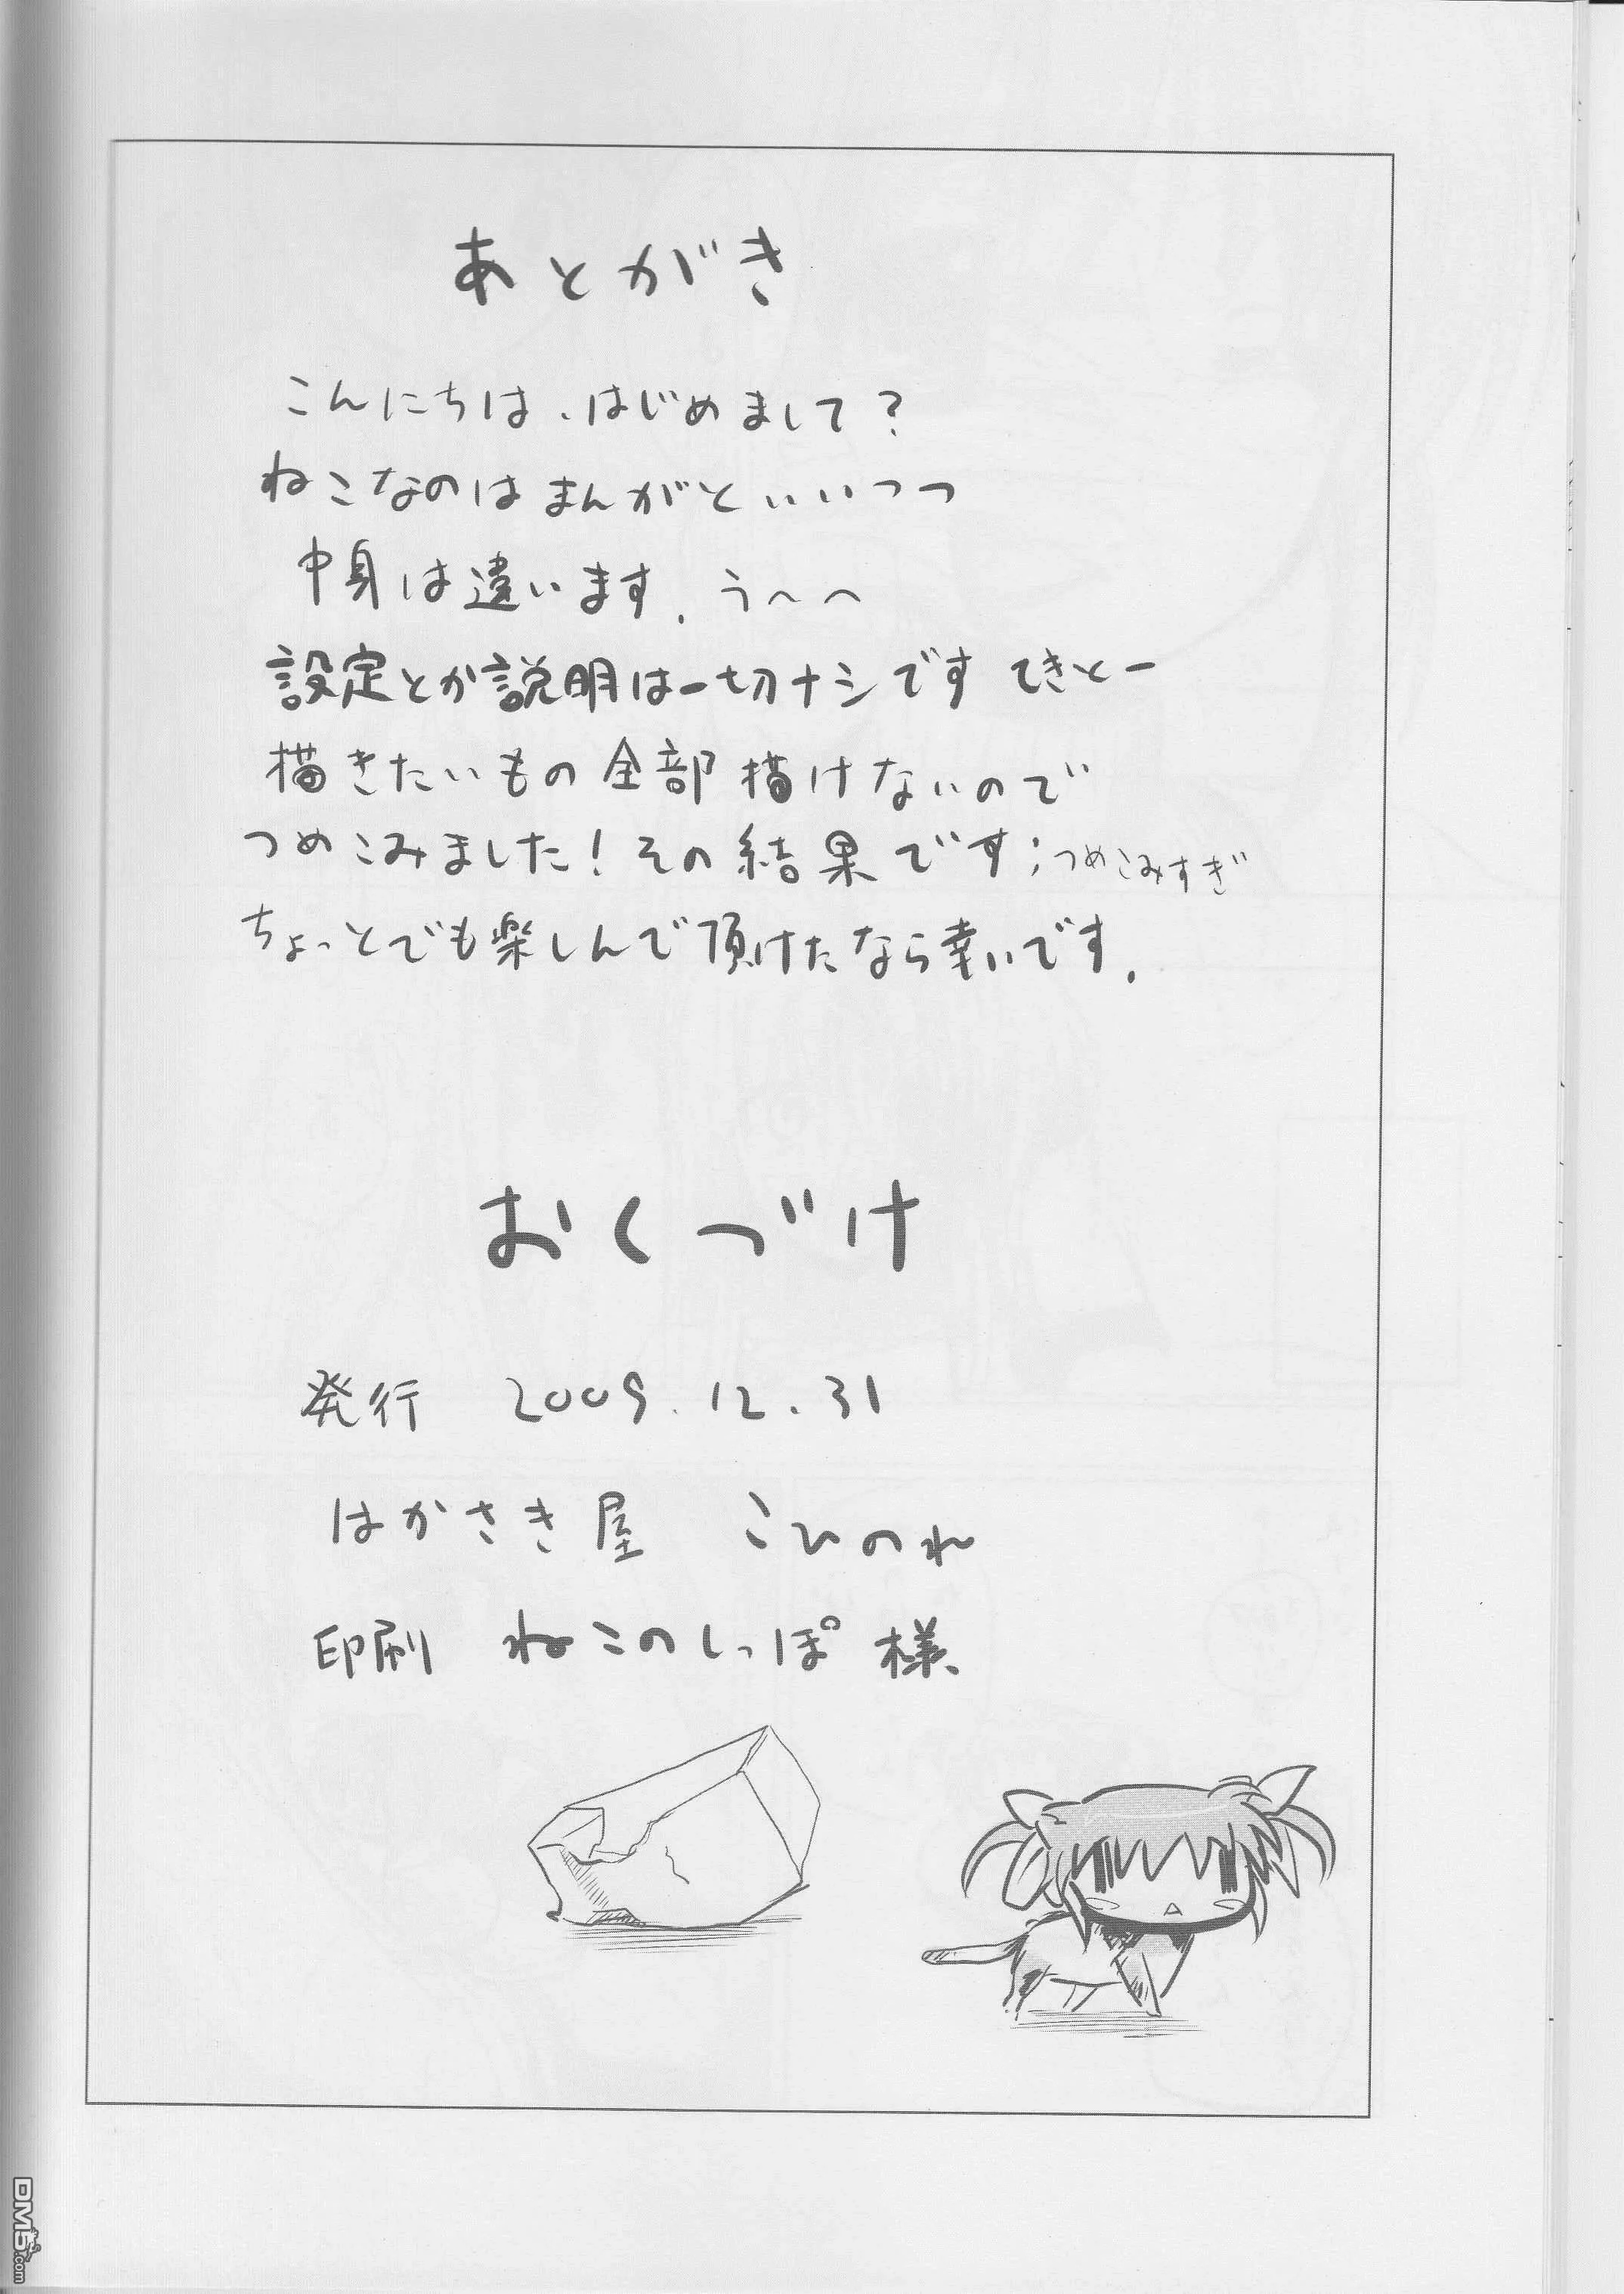 あとがき
こんにちは、はじめまして？
ねこなのはまんがといいつつ
中身は違います. う〜へ
設定とか説明は一切ナシです てきとー
描きたいもの全部描けないので
つめこみました！その結果です; つめこみすぎ
ちょっとでも楽しんで頂けたなら幸いです.
おくづけ
発行 2009.12.31
はかさき屋 こひのれ
印刷 ねこのしっぽ様
DMS.com